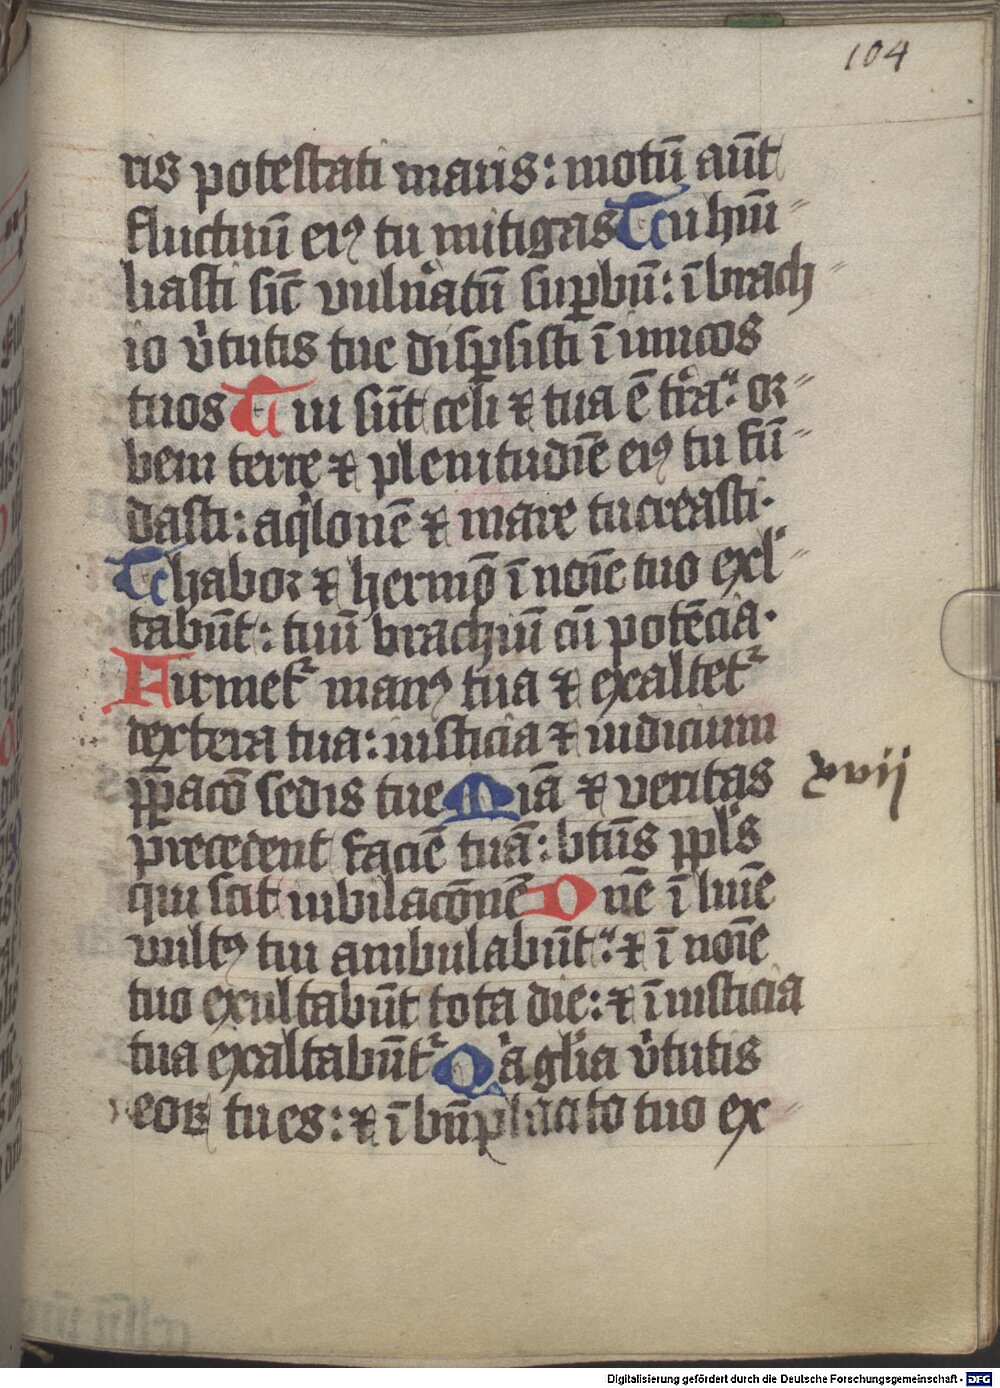 104
ris potestati maris: motū aūt
fluctuū eiꝰ tu mitigas Tu hūi⸗
liasti sic̄ vulnͣatū suꝑbū: ī brach⸗
io v̓tutis tue disꝑsisti īimicos
tuos Tui sūt celi ⁊ tua ē tr̄a: or⸗
bem terre ⁊ plenitudīē eiꝰ tu fū⸗
dasti: aqͥlonē ⁊ mare tu creasti·
Thabor ⁊ hermō ī noīe tuo exl⸗
tabūt: tuū brachiū cū potēcia·
Firmetᷣ manꝰ tua ⁊ exaltetᷣ
dextera tua: iusticia ⁊ iudicium
p̄ꝑacō sedis tue Mīa ⁊ veritas
precedent faciē tuā: btūs ppl̓s
qui scit iubilacōnē Dn̄e ī lumīe
vultꝰ tui ambulabūt: ⁊ ī noīe
tuo exultabūt tota die: ⁊ ī iusticia
tua exaltabūtᷣ Qͥa gl̓ia v̓tutis
eoꝝ tu es: ⁊ ī bn̄placito tuo ex⸗
xvii
Digitalisierung gefördert durch die Deutsche Forschungsgemeinschaft - DFG